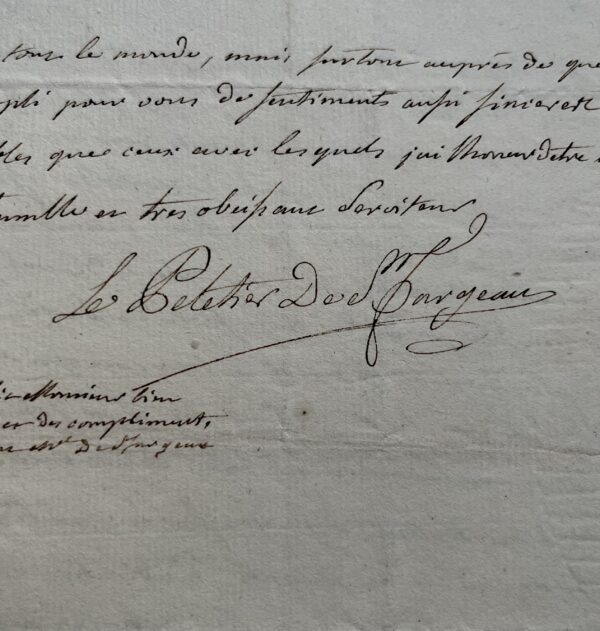 tout le monde, mais surtout auprés de que
pli pour vous de sentiments aussi sinceres et
bles que ceux avec lesquels jai lhoneur detre
humble et tres obeissant Serviteur
Le Peletier De St fargeau
Monsieur bien
des compliments,
De St fargeau